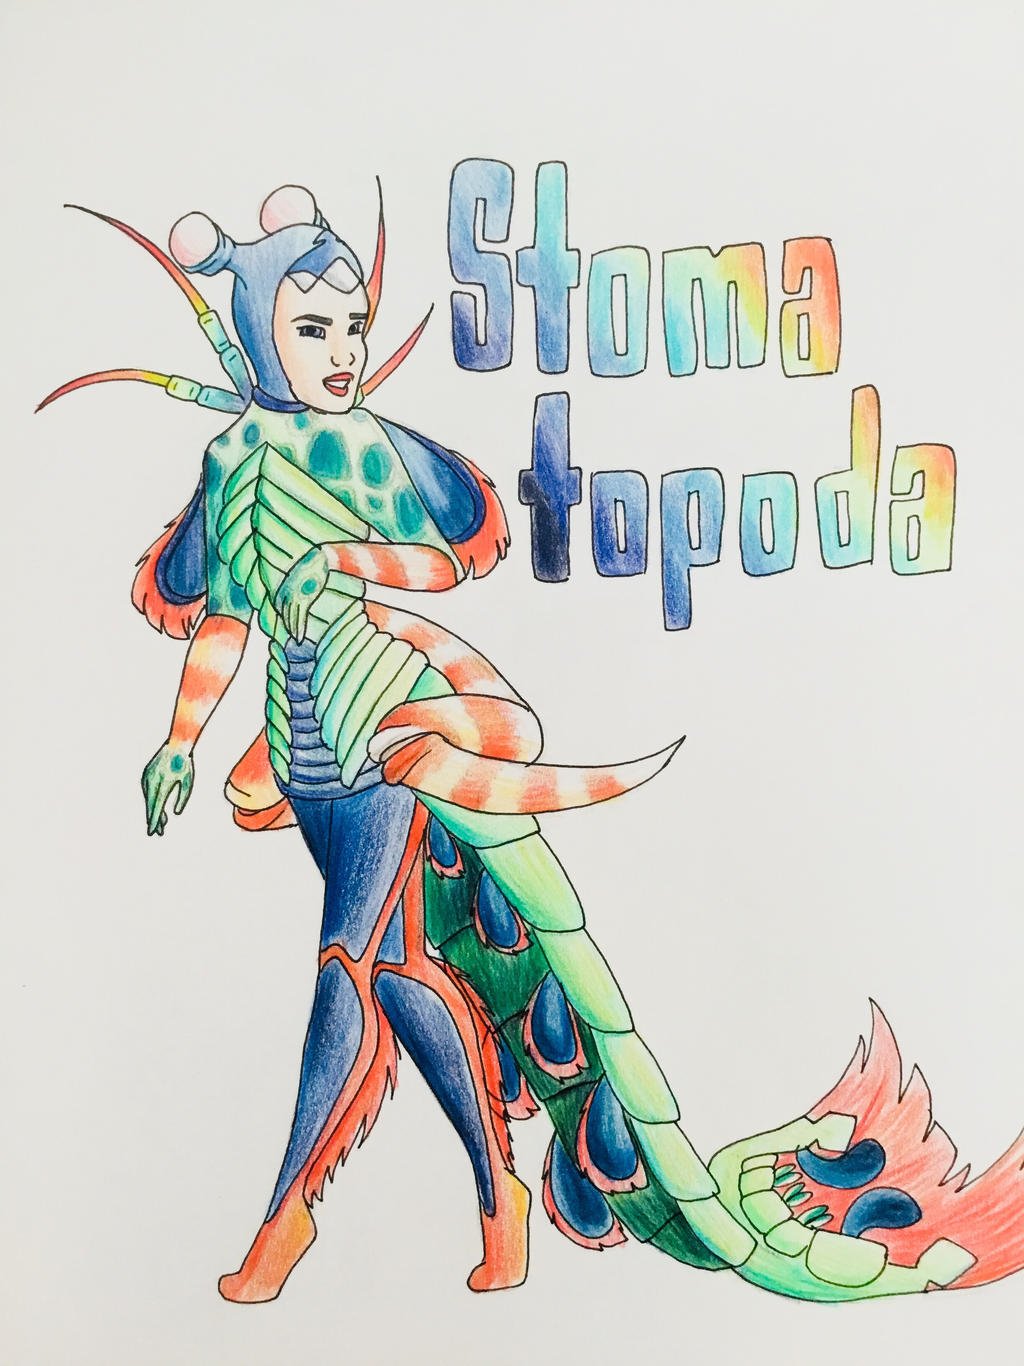 Stoma
topoda